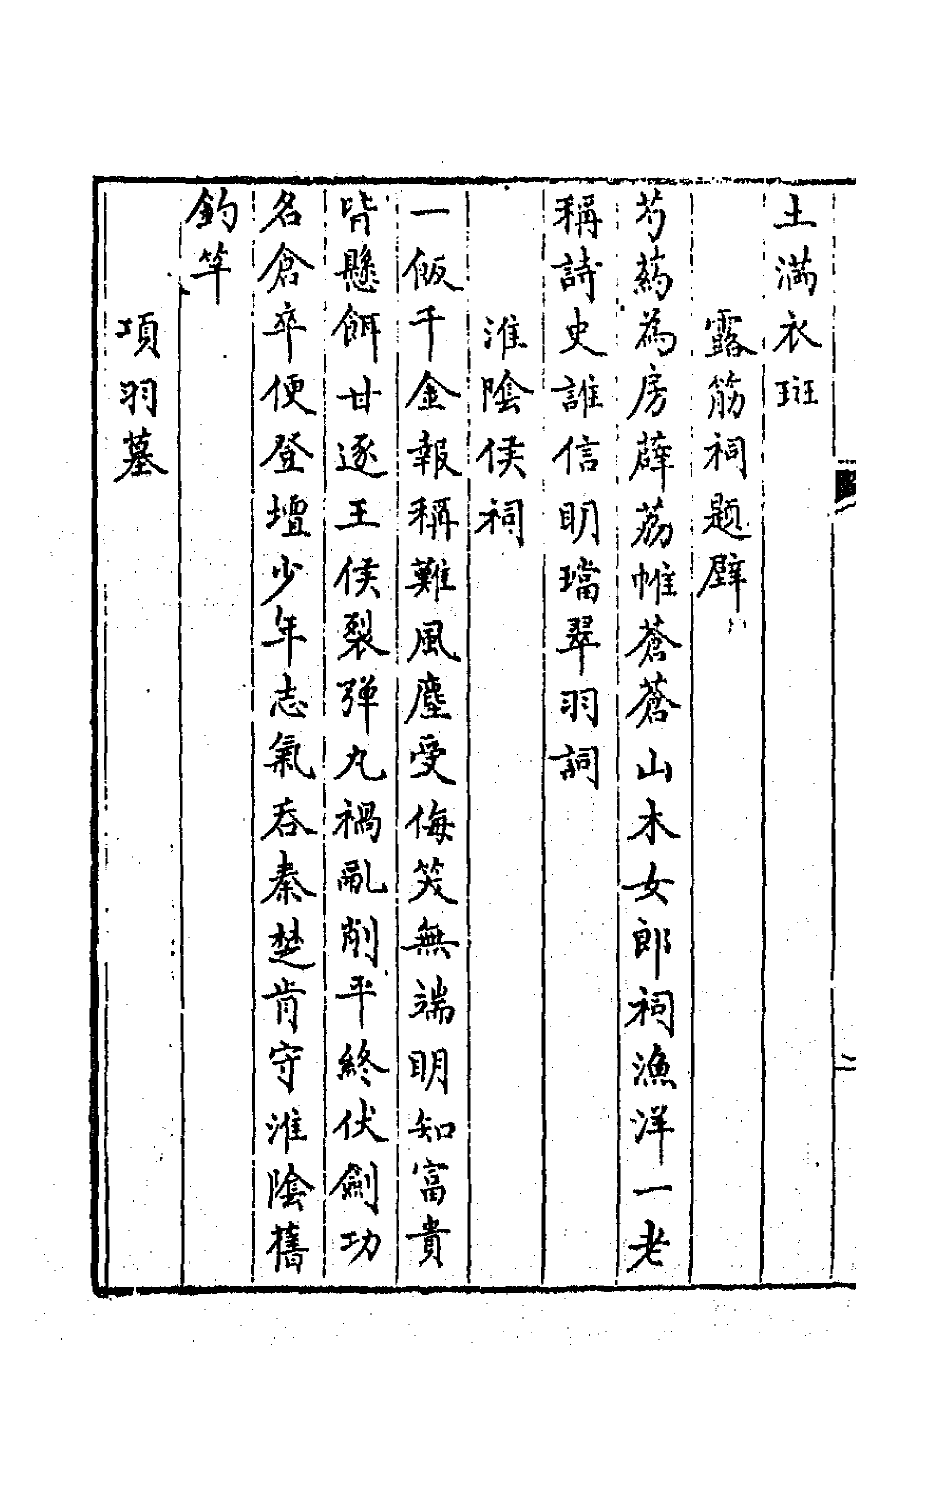 土满衣斑
露筋祠題壁
芍葯為房薜荔帷蒼蒼山木女郎祠漁洋一老
稱詩史誰信明璫翠羽詞
淮陰侯祠
一飯千金報稱難風塵受侮笑無端明知富貴
皆懸餌甘逐王侯裂彈丸禍亂削平終伏劍功
名倉卒便登壇少年志氣吞秦楚肯守淮陰舊
釣竿
項羽墓
二